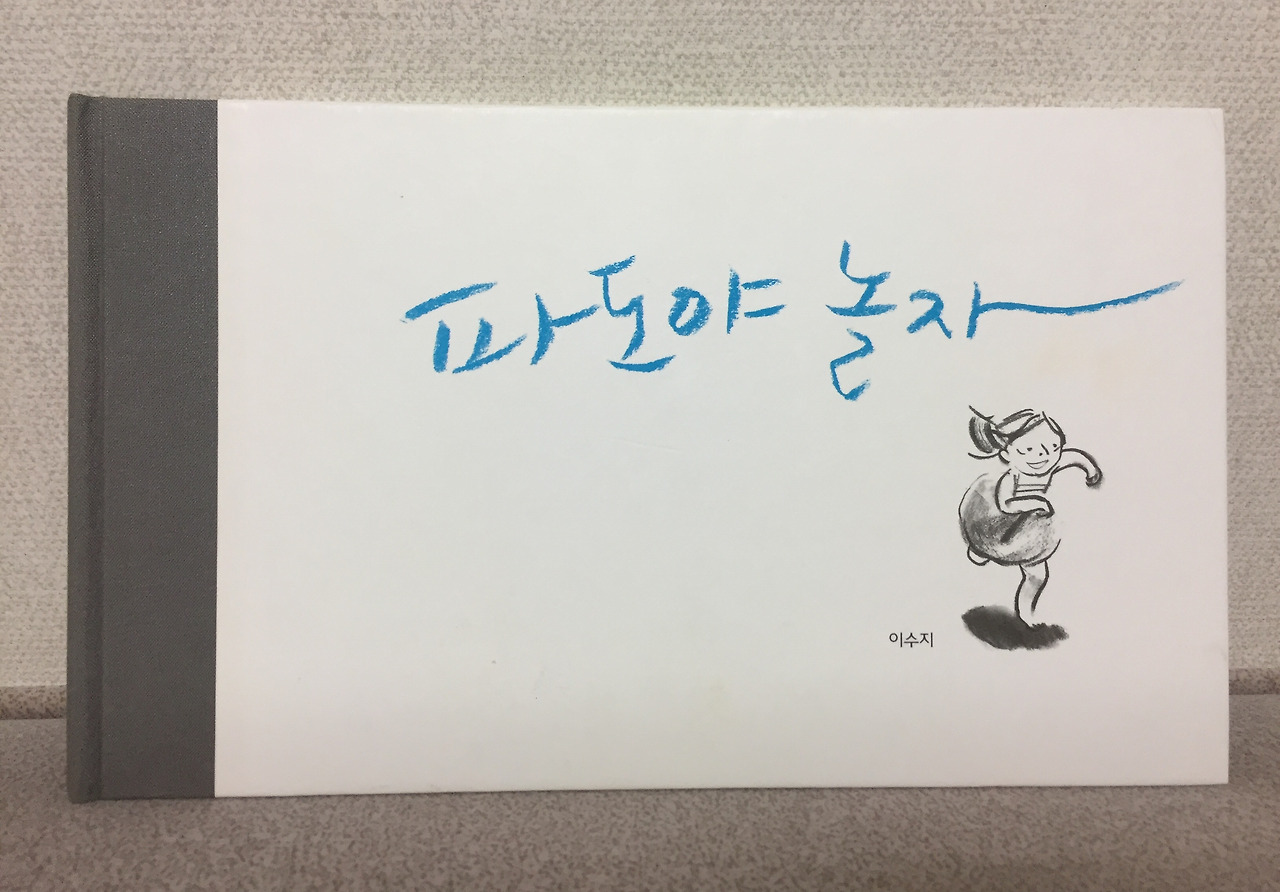 파도야 놀자
이수지